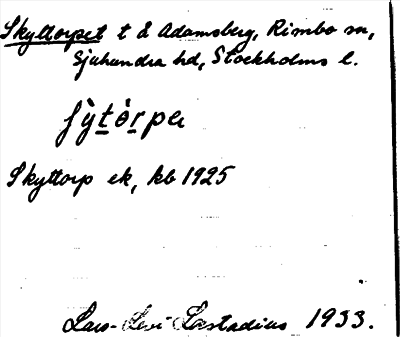 Skyttorpet t. Adamsberg, Rimbo sn,
Sjuhundra hd, Stockholms l.
ʃỳtò̱rpeı
Skyttorp ek, kb 1925
Lars-Levi Læstadius 1933.